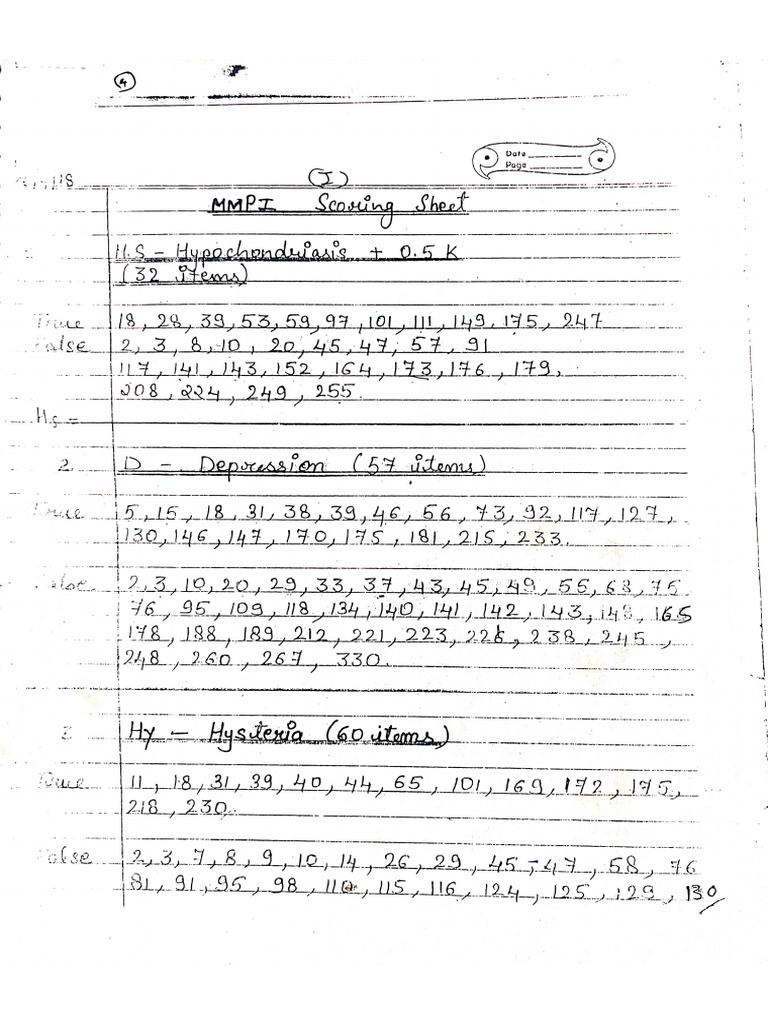 4
Date
Page
(I)
MMPI Scoring Sheet
H.S - Hypochondriasis + 0.5 K
(32 items)
True 18, 28, 39, 53, 59, 97, 101, 111, 149, 175, 247
False 2, 3, 8, 10, 20, 45, 47, 57, 91
117, 141, 143, 152, 164, 173, 176, 179,
208, 224, 249, 255.
Hs =
2. D - Depression (57 items)
True 5, 15, 18, 31, 38, 39, 46, 56, 73, 92, 117, 127,
130, 146, 147, 170, 175, 181, 215, 233.
False 2, 3, 10, 20, 29, 33, 37, 43, 45, 49, 55, 68, 75
76, 95, 109, 118, 134, 140, 141, 142, 143, 148, 165
178, 188, 189, 212, 221, 223, 226, 238, 245,
248, 260, 267, 330.
3 Hy - Hysteria (60 items)
True 11, 18, 31, 39, 40, 44, 65, 101, 169, 172, 175,
218, 230.
False 2, 3, 7, 8, 9, 10, 14, 26, 29, 45, 47, 58, 76
81, 91, 95, 98, 110, 115, 116, 124, 125, 129, 130